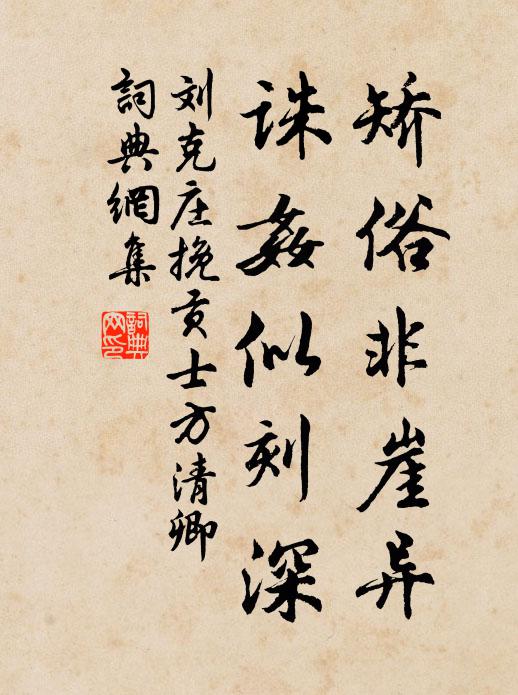 矫俗非崖异
诛姦似刻深
刘克庄挽贡士方清卿
詞典網集
詞典網印